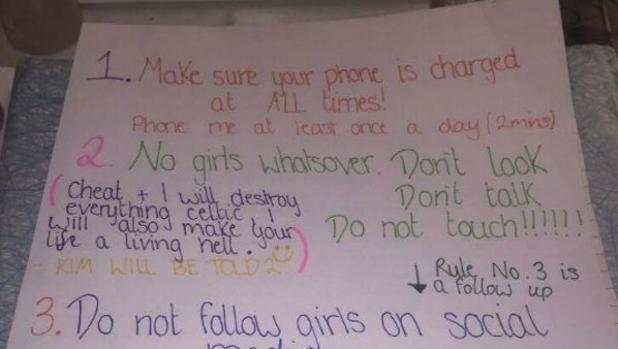 1. Make sure your phone is charged
at ALL times!
Phone me at least once a day (2mins)
2. No girls whatsover. Don't look
Don't talk
Do not touch!!!!!!
(Cheat + I will destroy
everything celtic. I
will also make your
life a living hell.)
- KIM WILL BE TOLD 2
↓ Rule No. 3 is
a follow up
3. Do not follow girls on social
media